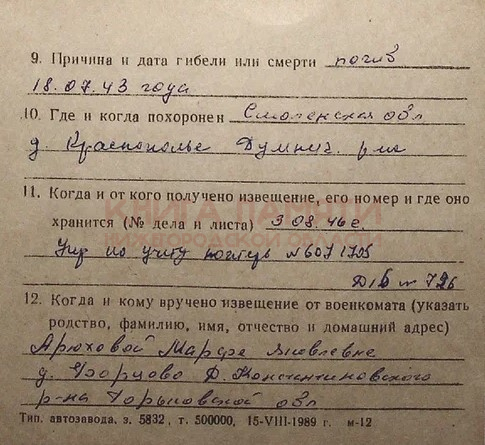 9. Причина и дата гибели или смерти погиб
18.07.43 года
10. Где и когда похоронен Смоленская обл
д. Краснополье Думинич. р-на
11. Когда и от кого получено извещение, его номер и где оно
хранится (№ дела и листа) 3 08. 46 г.
Упр по учету потерь №6071705
12. Когда и кому вручено извещение от военкомата (указать
родство, фамилию, имя, отчество и домашний адрес)
Арюховой Марфе Яковлевне
д. Д. Константиновского
р-на Горьковской обл
Тип. автозавода, з. 5832, т. 500000, 15-VIII-1989 г. м-12
КНИГА ПАМЯТИ